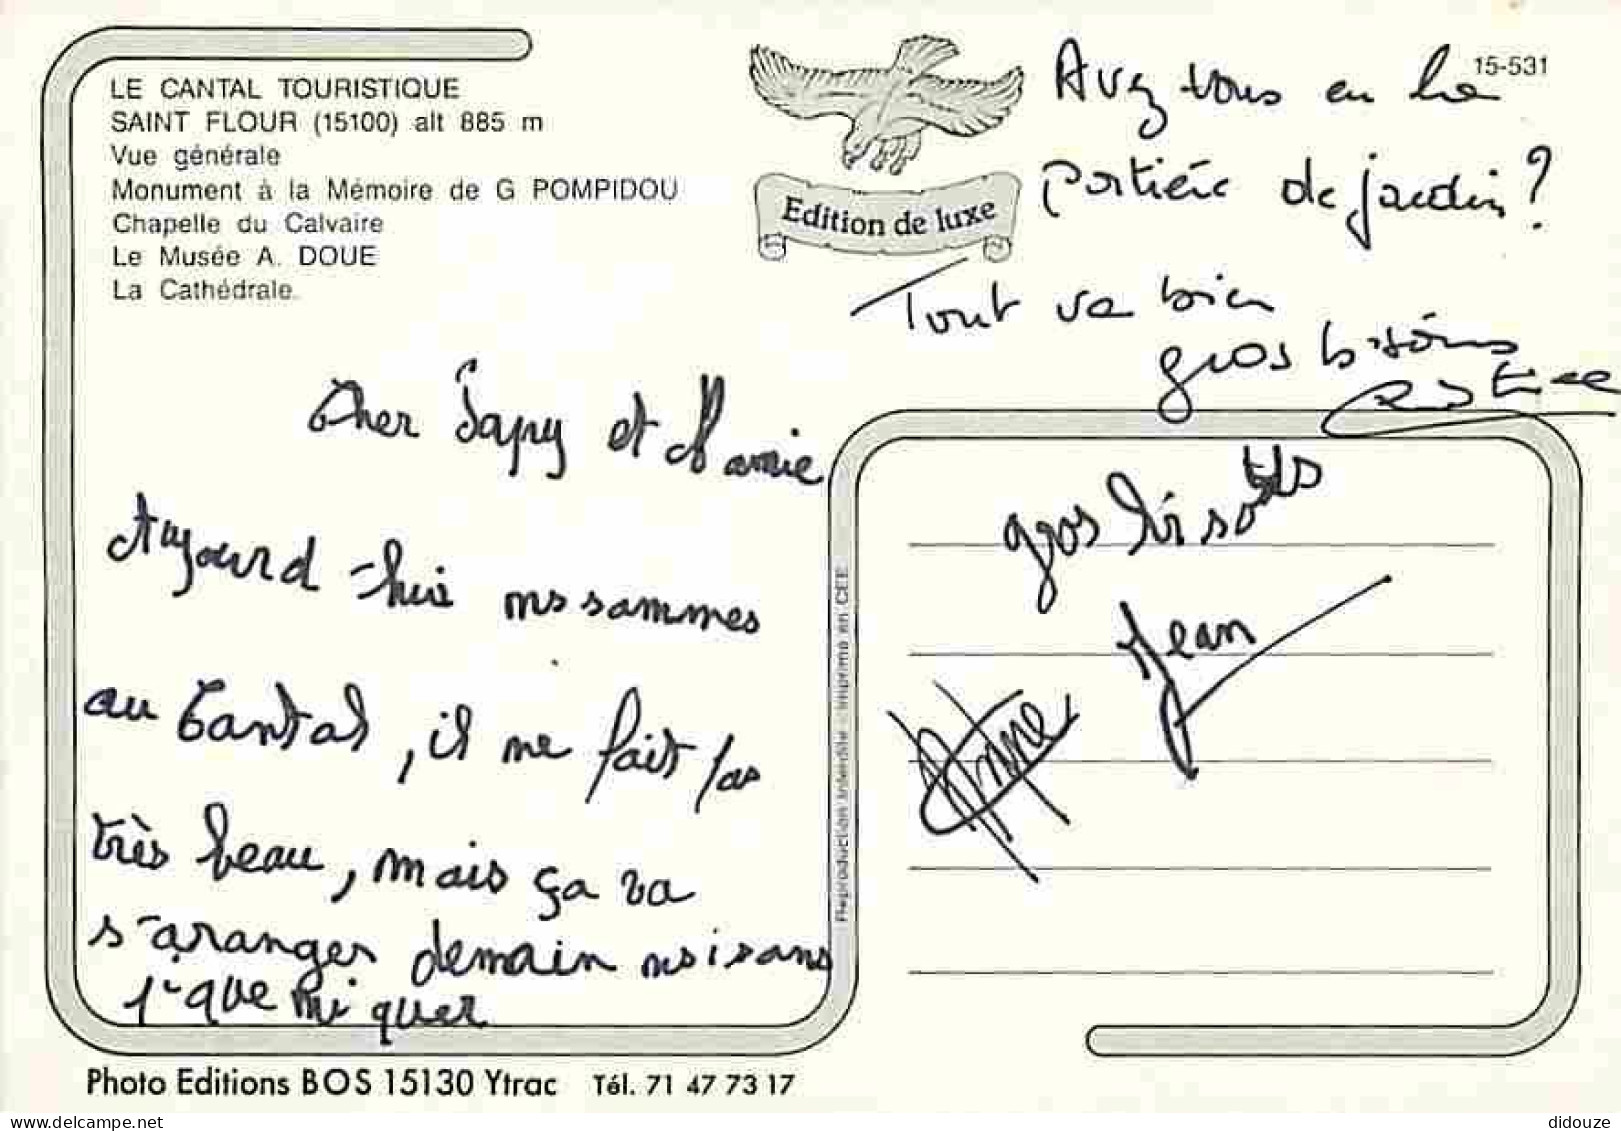 LE CANTAL TOURISTIQUE
SAINT FLOUR (15100) alt 885 m
Vue générale
Monument à la Mémoire de G POMPIDOU
Chapelle du Calvaire
Le Musée A. DOUE
La Cathédrale.
Edition de luxe
15-531
Avez vous eu la
portière de jardin ?
Tout va bien
gros bisous
Cher Papy et Mamie
Aujourd'hui ns sommes
au Cantal, il ne fait pas
très beau, mais ça va
s'aranger demain ns isons
que ni quer
gros bisous
Jean
Anne
Reproduction interdite - Imprimé en CEE
Photo Editions BOS 15130 Ytrac Tél. 71 47 73 17
didouze